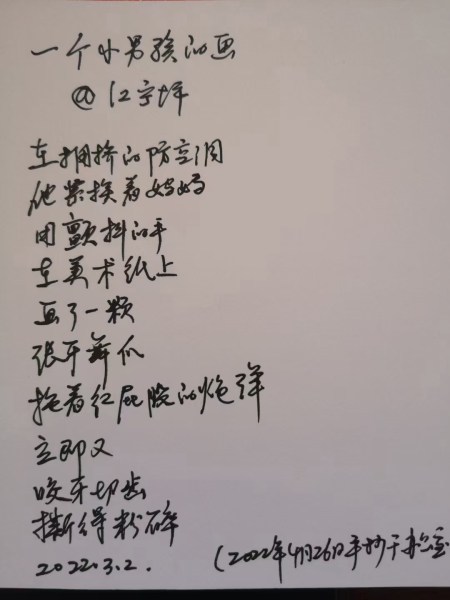 一个小男孩的画
@江宁坪
在拥挤的防空洞
他紧挨着妈妈
用颤抖的手
在美术纸上
画了一颗
张牙舞爪
拖着红屁股的炮弹
立即又
咬牙切齿
撕得粉碎
2022.3.2.
(2022年4月26日平抄于办公室